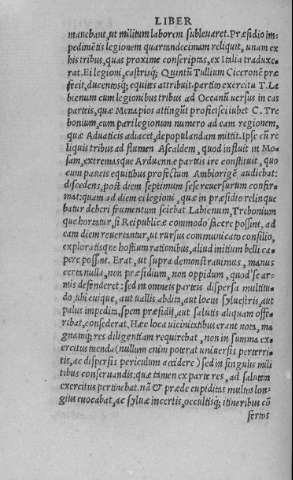 LIBER
manebant, ut militum laborem subleuaret. Præsidio im-
pedimentis legionem quartamdecimam reliquit, unam ex
his tribus, quas proxime conscriptas, ex Italia traduxe-
rat. Ei legioni, castrisq; Quintū Tullium Ciceronē præ-
fecit, ducentosq; equites attribuit. partito exercitu T. La-
bienum cum legionibus tribus ad Oceanū uersus in eas
parteis, quæ Menapios attingūt proficisci iubet C. Tre-
bonium, cum pari legionum numero ad eam regionem,
quæ Aduaticis adiacet, depopulandam mittit. Ipse cū re-
liquis tribus ad flumen Ascaldem, quod influit in Mo-
sam, extremasque Arduennæ parteis ire constituit, quo
cum paucis equitibus profectum Ambiorigē audiebat:
discedens, post diem septimum sese reuersurum confir-
mat: quam ad diem ei legioni, quæ in præsidio relinque
batur deberi frumentum sciebat Labienum, Trebonium
que hortatur, si Reipublicæ commodo facere possint, ad
eam diem reuertantur, ut rursus communicato consilio,
exploratisque hostium rationibus, aliud initium belli ca-
pere possint. Erat, ut supra demonstrauimus, manus
certa nulla, non præsidium, non oppidum, quod se ar-
mis defenderet: sed in omneis partes dispersa multitu-
do, ubi cuique, aut uallis abdita, aut locus syluestris, aut
palus impedita, spem præsidij, aut salutis aliquam offe-
rebat, consederat. Hæc loca uicinitatibus erant nota, ma
gnamq; res diligentiam requirebat, non in summa ex-
ercitus tuenda (nullum enim poterat uniuersis perterri-
tis, ac dispersis periculum accidere) sed in singulis mili
tibus conseruandis: quæ tamen ex parte res, ad salutem
exercitus pertinebat. nā & prædæ cupiditas multos lon-
gius euocabat, ac syluæ incertis, occultisq; itineribus cō
fertos